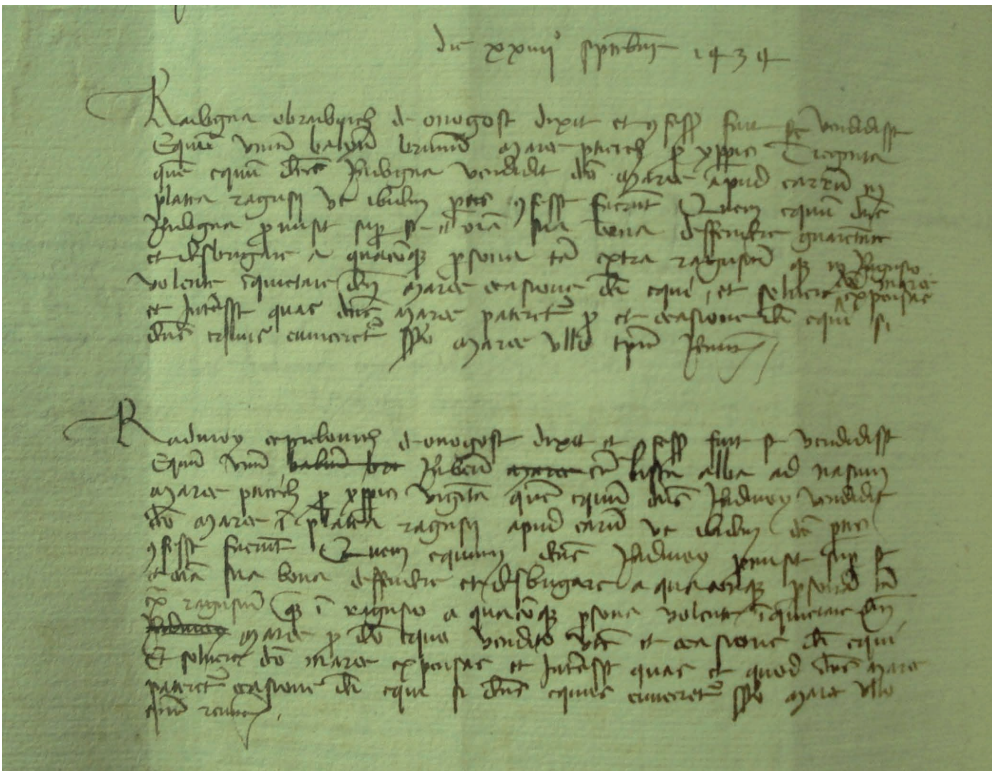 die xxiiii septembris 1434
Radogna obradovich de onogost dixit et confessus fuit se vendidisse
Equum unum balzan brunum Maroe putich pro yperperis Triginta
quem equum dictus Radogna vendidit dicto Maroe apud carrum in
platea ragusii ut ibidem partes confesse fuerunt Quem equum dictus
Radogna promisit super se et omnia sua bona deffendere guarentare
et disbrigare a quacumque persona tam extra ragusium quam in Ragusio
volente inquietare dictum Maroe occasione dicti equi et solvere dicto Maroe expensas
et Interesse quas dictus Maroe pateretur pro et occasione dicti equi si
dictus equus eviceretur ipso Maroe ullo tempore
Radivoy de onogost dixit et confessus fuit se vendidisse
Equum unum Rubeum cum alba ad nasum
Maroe putich pro yperperis viginti quem equum dictus Radivoy vendidit
dicto Maroe in platea ragusii apud carrum ut ibidem dicte partes
confesse fuerunt Quem equum dictus Radivoy promisit super se
et omnia sua bona deffendere et disbrigare a quacumque persona tam
extra ragusium quam in ragusio a quacumque persona volente inquietare dictum
Maroe pro dicto equo vendito et occasione dicti equi
Et solvere dicto Maroe expensas et Interesse quas et quod dictus Maroe
pateretur occasione dicti equi si dictus equus eviceretur ipso Maroe ullo